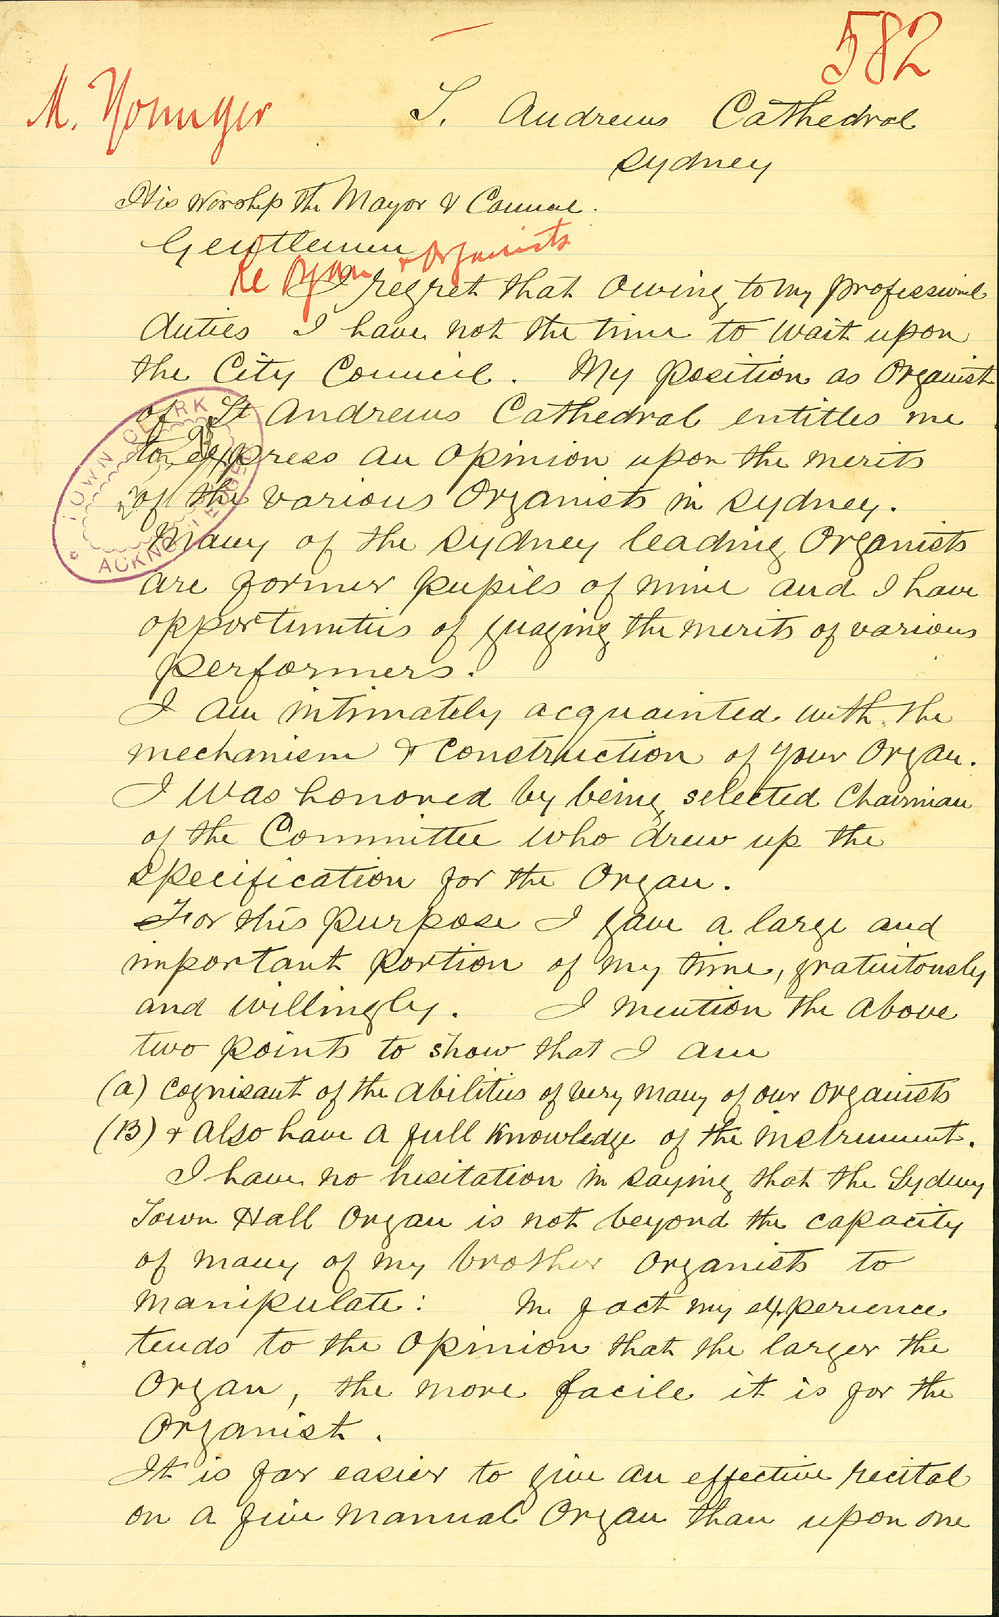 582
M. Younger
S. Andrews Cathedral
Sydney
His Worship the Mayor & Council.
Gentlemen
Re Organ & Organists
I regret that owing to my professional
duties I have not the time to wait upon
the City Council. My position as Organist
of St Andrews Cathedral entitles me
to express an opinion upon the merits
of the various Organists in Sydney.
TOWN CLERK
ACKNOWLEDGED
Many of the Sydney leading Organists
are former pupils of mine and I have
opportunities of guaging the merits of various
performers.
I am intimately acquainted with the
mechanism & construction of your Organ.
I was honored by being selected Chairman
of the Committee who drew up the
specification for the Organ.
For this purpose I gave a large and
important portion of my time, gratuitously
and willingly. I mention the above
two points to show that I am
(a) cognisant of the abilities of very many of our Organists
(B) & also have a full knowledge of the instrument.
I have no hesitation in saying that the Sydney
Town Hall Organ is not beyond the capacity
of many of my brother Organists to
manipulate: In fact my experience
tends to the opinion that the larger the
Organ, the more facile it is for the
Organist.
It is far easier to give an effective recital
on a five manual Organ than upon one